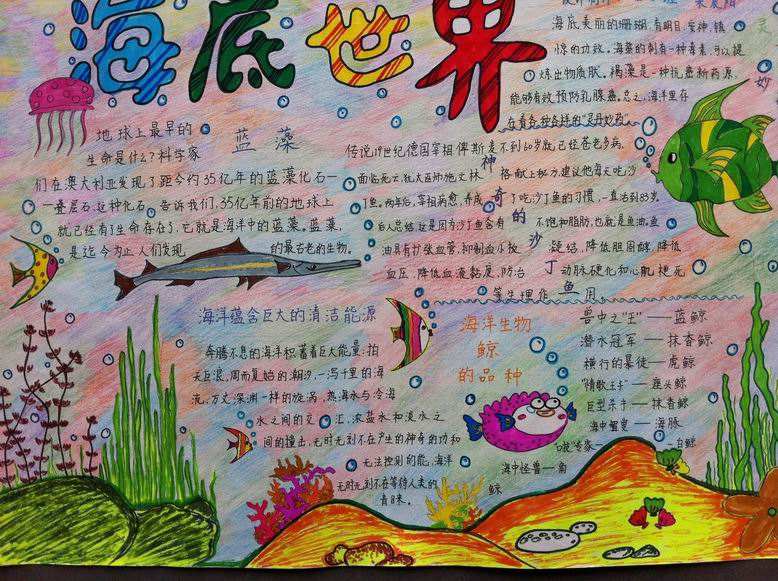 海底世界
海底美丽的珊瑚,有明目,安神,镇
惊的功效。海葵的刺有一种毒素,可以提
炼出物质肽。褐藻是一种抗癌新药源,
能够有效预防乳腺癌。总之,海洋里存
在着各种各样的“灵丹妙药”。
灵
妙
蓝藻
地球上最早的
生命是什么?科学家
们在澳大利亚发现了距今约35亿年的蓝藻化石—
—叠层石,这种化石,告诉我们,35亿年前的地球上
就已经有了生命存在了,它就是海洋中的蓝藻。蓝藻,
是迄今为止人们发现的最古老的生物。
神奇的沙丁鱼
传说19世纪德国宰相俾斯麦不到60岁就已经苍老多病,
面临死亡,犹太巫师施文林格献上秘方建议他每天吃沙
丁鱼。两年后,宰相病愈,养成了吃沙丁鱼的习惯,一直活到83岁。
后人总结,这是因为沙丁鱼含有不饱和脂肪,也就是鱼油。鱼
油具有扩张血管,抑制血小板凝结,降低胆固醇,降低
血压,降低血液黏度,防治动脉硬化和心肌梗死
等生理作用
海洋蕴含巨大的清洁能源
奔腾不息的海洋积蓄着巨大能量:拍
天巨浪,周而复始的潮汐,一泻千里的海
流,万丈深渊一样的旋涡,热海水与冷海
水之间的交汇,浓盐水和淡水之
间的撞击,无时无刻不在产生的神奇的功和
无法控制的能,海洋
无时无刻不在等待人类的
青睐。
海洋生物
鲸
的品种
兽中之“王”——蓝鲸
潜水冠军——抹香鲸
横行的暴徒——虎鲸
“情歌王子”——座头鲸
巨型杀牛——抹香鲸
海中智叟——海豚
口技专家——白鲸
海中怪兽——角
鲸